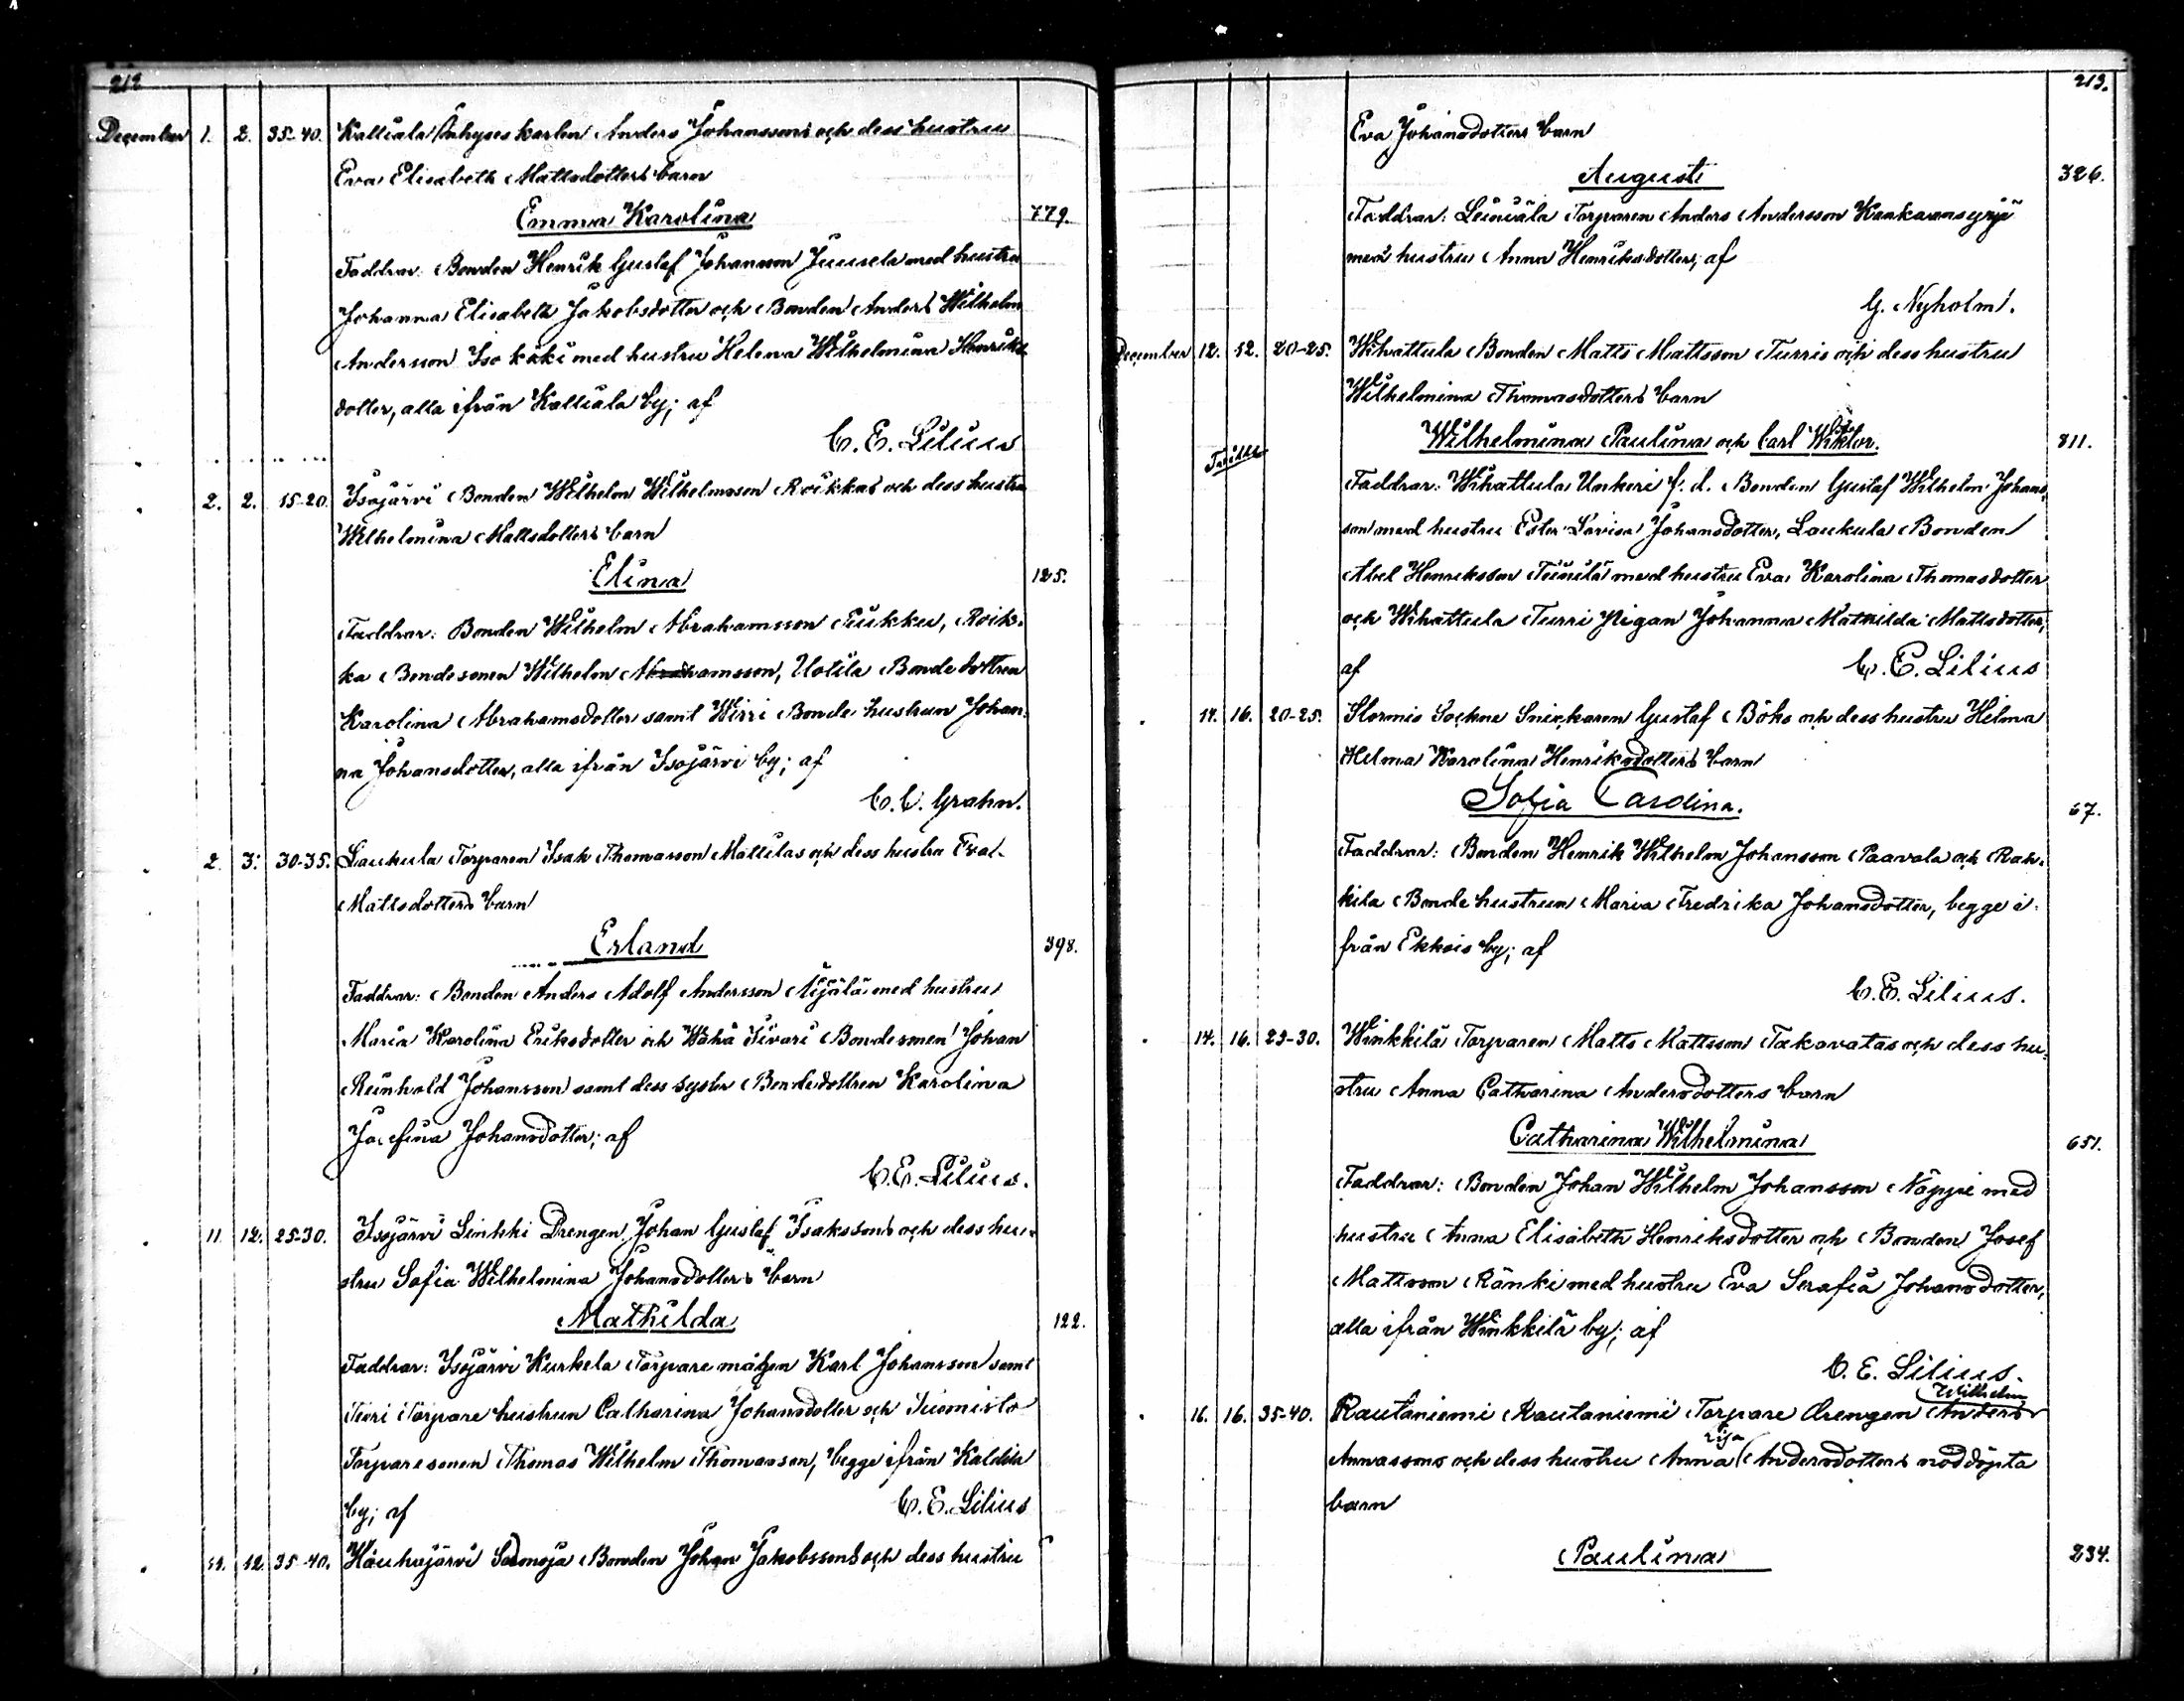 212
December 1. 2. 35-40. Kalliala Inhyses karlen Anders Johanssons och dess hustru
Eva Elisabeth Mattsdotters barn
Emma Karolina 779.
Faddrar: Bonden Henrik Gustaf Johansson Juusela med hustru
Johanna Elisabeth Jakobsdotter och Bonden Anders Wilhelm
Andersson Iso käki med hustru Helena Wilhelmina Henriks
dotter, alla ifrån Kalliala by; af
C. E. Lilius
2. 2. 15-20. Isojärvi Bonden Wilhelm Wilhelmsson Roikkas och dess hustru
Wilhelmina Mattsdotters barn
Elina 125.
Faddrar: Bonden Wilhelm Abrahamsson Piukku, Roik-
ka Bondesonen Wilhelm Abrahamsson, Uotila Bonde dottren
Karolina Abrahamsdotter samt Wirri Bonde hustrun Johan-
na Johansdotter, alla ifrån Isojärvi by; af
C. C. Grahn.
2. 3. 30-35. Laukula Torparen Isak Thomasson Mattilas och dess hustru Eva
Mattsdotters barn
Erland 398.
Faddrar: Bonden Anders Adolf Andersson Äijälä med hustru
Maria Karolina Eriksdotter och Wähä Iivari Bondesonen Johan
Reinhold Johansson samt dess syster Bondedottren Karolina
Josefina Johansdotter; af
C. E. Lilius.
11. 12. 25-30. Isojärvi Linkki Drengen Johan Gustaf Isakssons och dess hu-
stru Sofia Wilhelmina Johansdotters barn
Mathilda 122.
Faddrar: Isojärvi Kurkela Torpare mågen Karl Johansson samt
Torpare hustrun Catharina Johansdotter och Tuomisto
Torparesonen Thomas Wilhelm Thomasson, begge ifrån
by; af C. E. Lilius
12. 12. 35-40. Houhajärvi Bonden Johan Jakobssons och dess hustru
213.
Eva Johansdotters barn
August 326.
Faddrar: Leiniälä Torparen Anders Andersson
med hustru Anna Henriksdotter; af
G. Nyholm.
December 12. 12. 20-25. Wihattula Bonden Matts Mattsson Turris och dess hustru
Wilhelmina Thomasdotters barn
Tvilli Wilhelmina Paulina och Carl Wiktor. 811.
Faddrar: Wihattula Unkeri f. d. Bonden Gustaf Wilhelm Johans-
son med hustru Ester Lovisa Johansdotter, Laukula Bonden
Abel Henriksson Teinilä med hustru Eva Karolina Thomasdotter
och Wihattula Turri Pigan Johanna Mathilda Mattsdotter,
af C. E. Lilius
14. 16. 20-25. Stormis Sockne Snickaren Gustaf Böks och dess hustru Hilma
Hilma Karolina Henriksdotters barn
Sofia Carolina. 67.
Faddrar: Bonden Henrik Wilhelm Johansson Paavola och Rau-
kila Bonde hustrun Maria Fredrika Johansdotter, begge i-
från Ekkois by; af
C. E. Lilius.
14. 16. 29-30. Winkkilä Torparen Matts Mattsson Takavatas och dess hu-
stru Anna Catharina Andersdotters barn
Catharina Wilhelmina 651.
Faddrar: Bonden Johan Wilhelm Johansson Näppi med
hustru Anna Elisabeth Henriksdotter och Bonden Josef
Mattsson Ränki med hustru Eva Serafia Johansdotter,
alla ifrån Winkkilä by; af
C. E. Lilius.
Wilhelm
16. 16. 35-40. Rautaniemi Rautaniemi Torpare Drengen Anders
Annassons och dess hustru Anna Andersdotters nöddöpta
barn
Paulina 234.